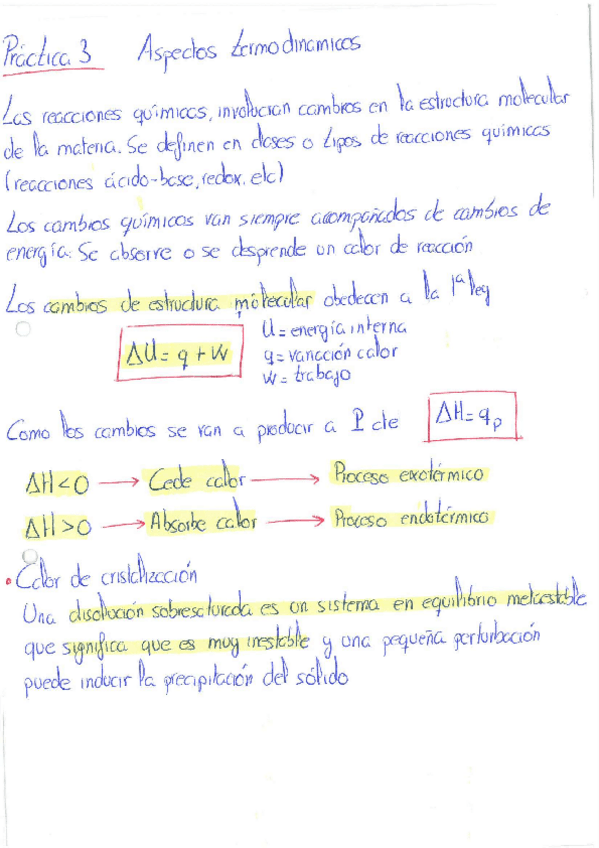 Práctica 3 Aspectos termodinamicos
Las reacciones químicas, involucran cambios en la estructura molecular
de la materia. Se definen en clases o tipos de reacciones químicas
(reacciones ácido-base, redox, etc)
Los cambios químicos van siempre acompañados de cambios de
energía. Se absorve o se desprende un calor de reacción
Los cambios de estructura molecular obedecen a la 1ª ley
ΔU = q + W
U = energía interna
q = variación calor
W = trabajo
Como los cambios se van a producir a P cte ΔH = qp
ΔH < 0 → Cede calor → Proceso exotérmico
ΔH > 0 → Absorbe calor → Proceso endotérmico
• Calor de cristalización
Una disolución sobresaturada es un sistema en equilibrio metaestable
que significa que es muy inestable y una pequeña perturbación
puede inducir la precipitación del sólido